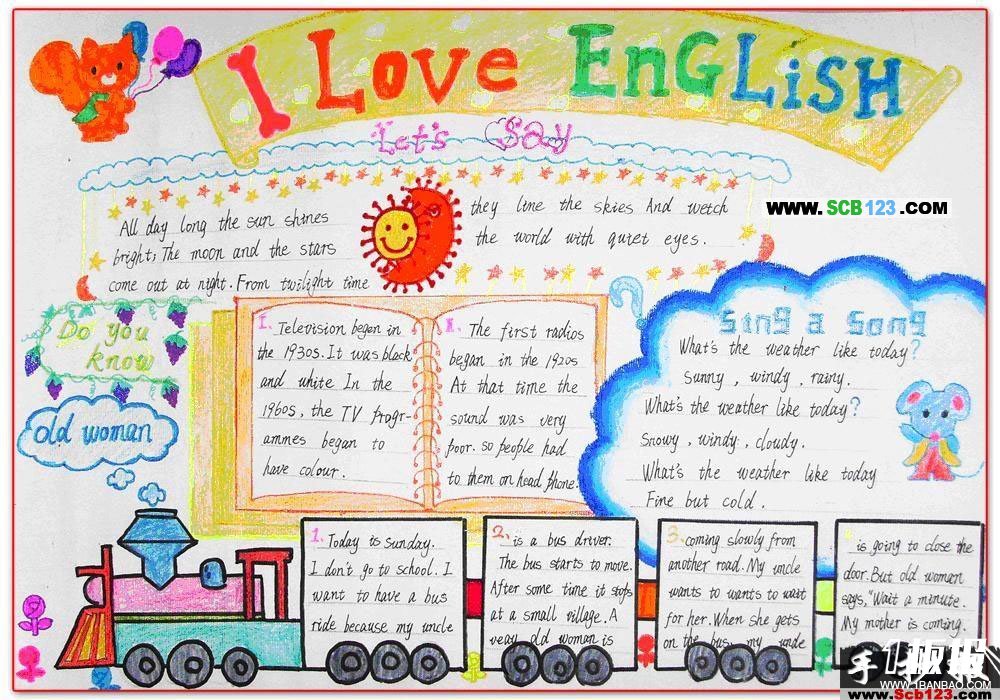 I Love EnGLiSH
Let's say
All day long the sun shines
bright; The moon and the stars
come out at night. From twilight time
they line the skies And wetch
the world with quiet eyes.
WWW.SCB123.COM
Do you
know
old woman
I. Television began in
the 1930s. It was black
and white In the
1960s, the TV progr-
ammes began to
have colour.
II. The first radios
began in the 1920s
At that time the
sound was very
poor. so people had
to them on head phone.
?
Sing a Song
What's the weather like today?
Sunny, windy, rainy.
What's the weather like today?
Snowy, windy, cloudy.
What's the weather like today
Fine but cold.
1. Today is Sunday.
I don't go to school. I
want to have a bus
ride because my uncle
2. is a bus driver.
The bus starts to move.
After some time it stops
at a small village. A
veay old woman is
3. coming slowly from
another road. My uncle
wants to wants to wait
for her. When she gets
on the bus, my uncle
is going to close the
door. But old woman
says, "Wait a minute.
My mother is coming.
WWW.1BANBAO.COM
www.Scb123.com